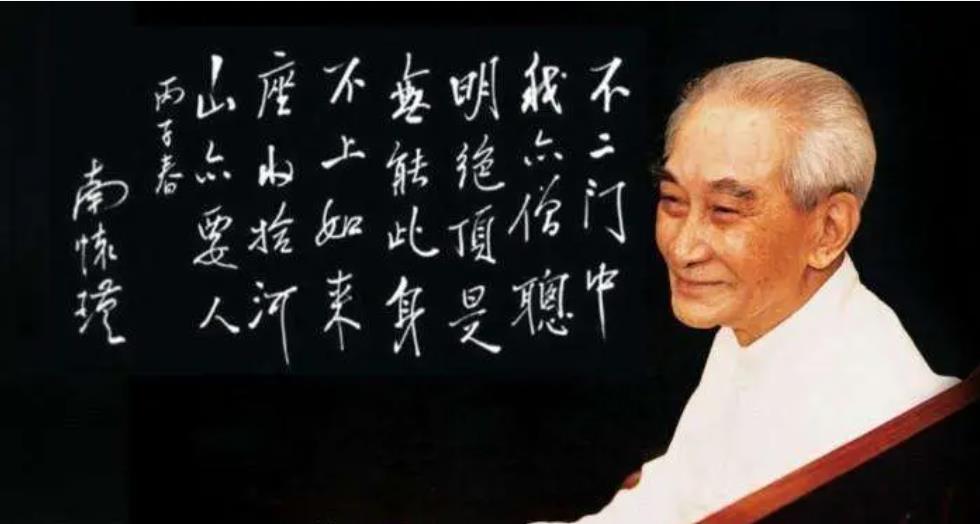 不二门中
我亦僧聰
明绝頂是
無能此身
不上如来
座收拾河
山亦要人
丙子春
南懷瑾